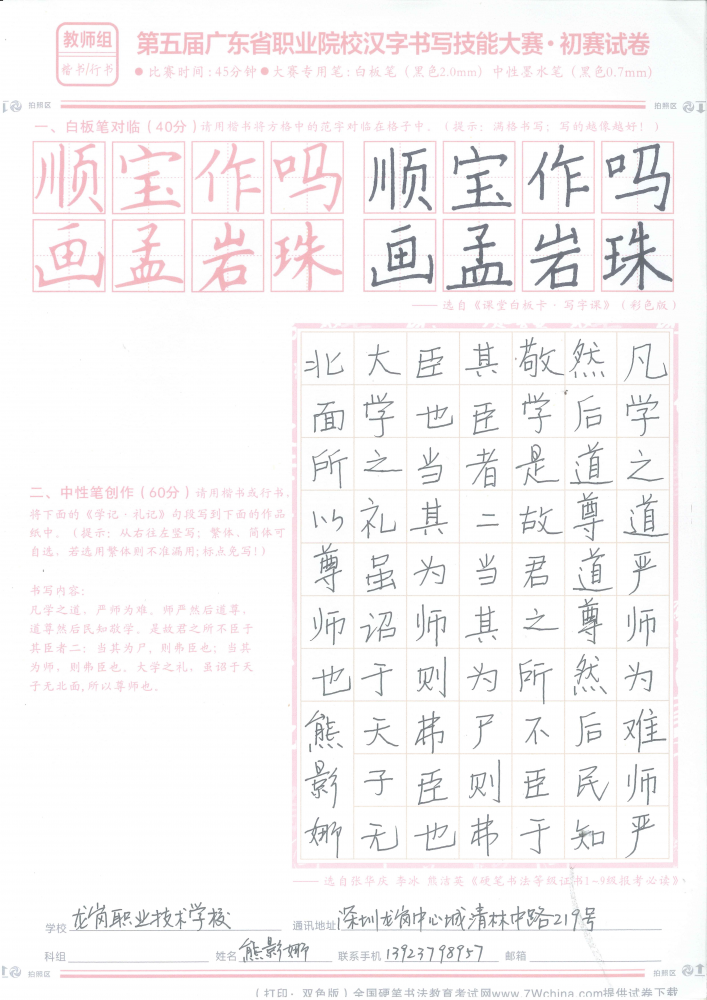 教师组
楷书/行书
第五届广东省职业院校汉字书写技能大赛·初赛试卷
●比赛时间:45分钟●大赛专用笔:白板笔(黑色2.0mm)中性墨水笔(黑色0.7mm)
拍照区
拍照区
一、白板笔对临(40分)请用楷书将方格中的范字对临在格子中。(提示:满格书写;写的越像越好!)
顺宝作吗
画孟岩珠
顺宝作吗
画孟岩珠
——选自《课堂白板卡·写字课》(彩色版)
二、中性笔创作(60分)请用楷书或行书,
将下面的《学记·礼记》句段写到下面的作品
纸中。(提示:从右往左竖写;繁体、简体可
自选,若选用繁体则不准漏用;标点免写!)
书写内容:
凡学之道,严师为难。师严然后道尊,
道尊然后民知敬学。是故君之所不臣于
其臣者二:当其为尸,则弗臣也;当其
为师,则弗臣也。大学之礼,虽诏于天
子无北面,所以尊师也。
凡学之道严师为难师严
然后道尊道尊然后民知
敬学是故君之所不臣于
其臣者二当其为尸则弗
臣也当其为师则弗臣也
大学之礼虽诏于天子无
北面所以尊师也熊影娜
——选自张华庆 李冰 熊洁英《硬笔书法等级证书1~9级报考必读》
学校 龙岗职业技术学校 通讯地址 深圳龙岗中心城清林中路219号
科组 姓名 熊影娜 联系手机 13923798957 邮箱
拍照区
拍照区
(打印:双色版)全国硬笔书法教育考试网www.7Wchina.com提供试卷下载